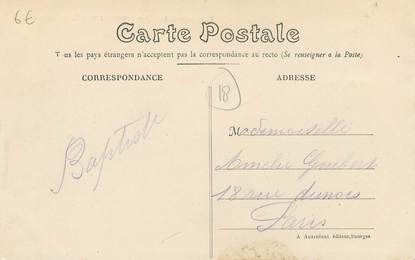 6€
Carte Postale
Tous les pays étrangers n'acceptent pas la correspondance au recto (Se renseigner à la Poste)
CORRESPONDANCE
ADRESSE
18
Mademoiselle
Amelie
Baptiste
18 rue dunois
Paris
éditeur, Bourges